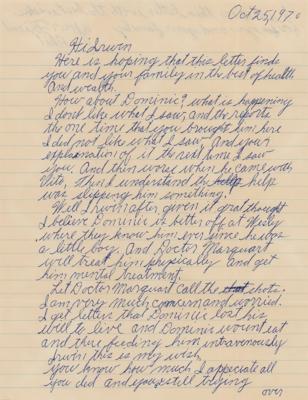 Oct 25, 1970
Hi Irwin
Here is hoping that this letter finds
you and your family in the best of health
and wealth.
How about Dominic? what is happening
I dont like what I saw, and the reports
the one time that you brought him here
I did not like what I saw and your
explanation of it the next time I saw
you. And then worse when he came with
Vito, Then I understand the help
was slipping him something.
Well Irwin after given it good thought
I believe Dominic is better off at Westy
where they know him, ever since he was
a little boy. And Doctor Marquart
will treat him physically and get
him mental treatment.
Let Doctor Marquart call the shots.
I am very much concern and worried.
I get letters that Dominic lost his
will to live and Dominic wount eat
and there feeding him intravenously
Irwin this is my wish
You know how much I appreciate all
you did and you still trying
over